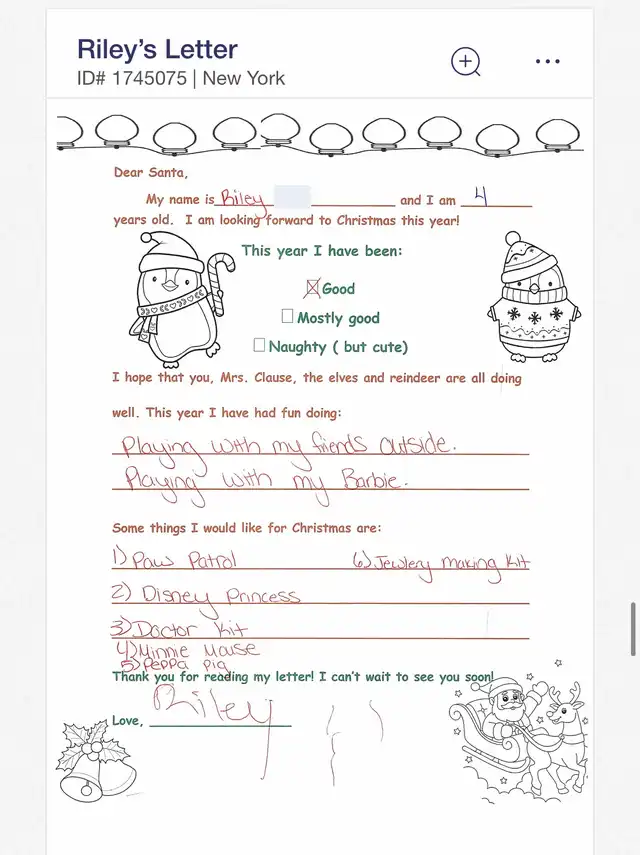 Riley's Letter
ID# 1745075 | New York
Dear Santa,
My name is Riley and I am 4
years old. I am looking forward to Christmas this year!
This year I have been:
Good
Mostly good
Naughty ( but cute)
I hope that you, Mrs. Clause, the elves and reindeer are all doing
well. This year I have had fun doing:
Playing with my friends outside.
Playing with my Barbie.
Some things I would like for Christmas are:
1) Paw Patrol 6) Jewlery making Kit
2) Disney Princess
3) Doctor Kit
4) Minnie Mouse
5) Peppa Pig
Thank you for reading my letter! I can't wait to see you soon!
Love, Riley